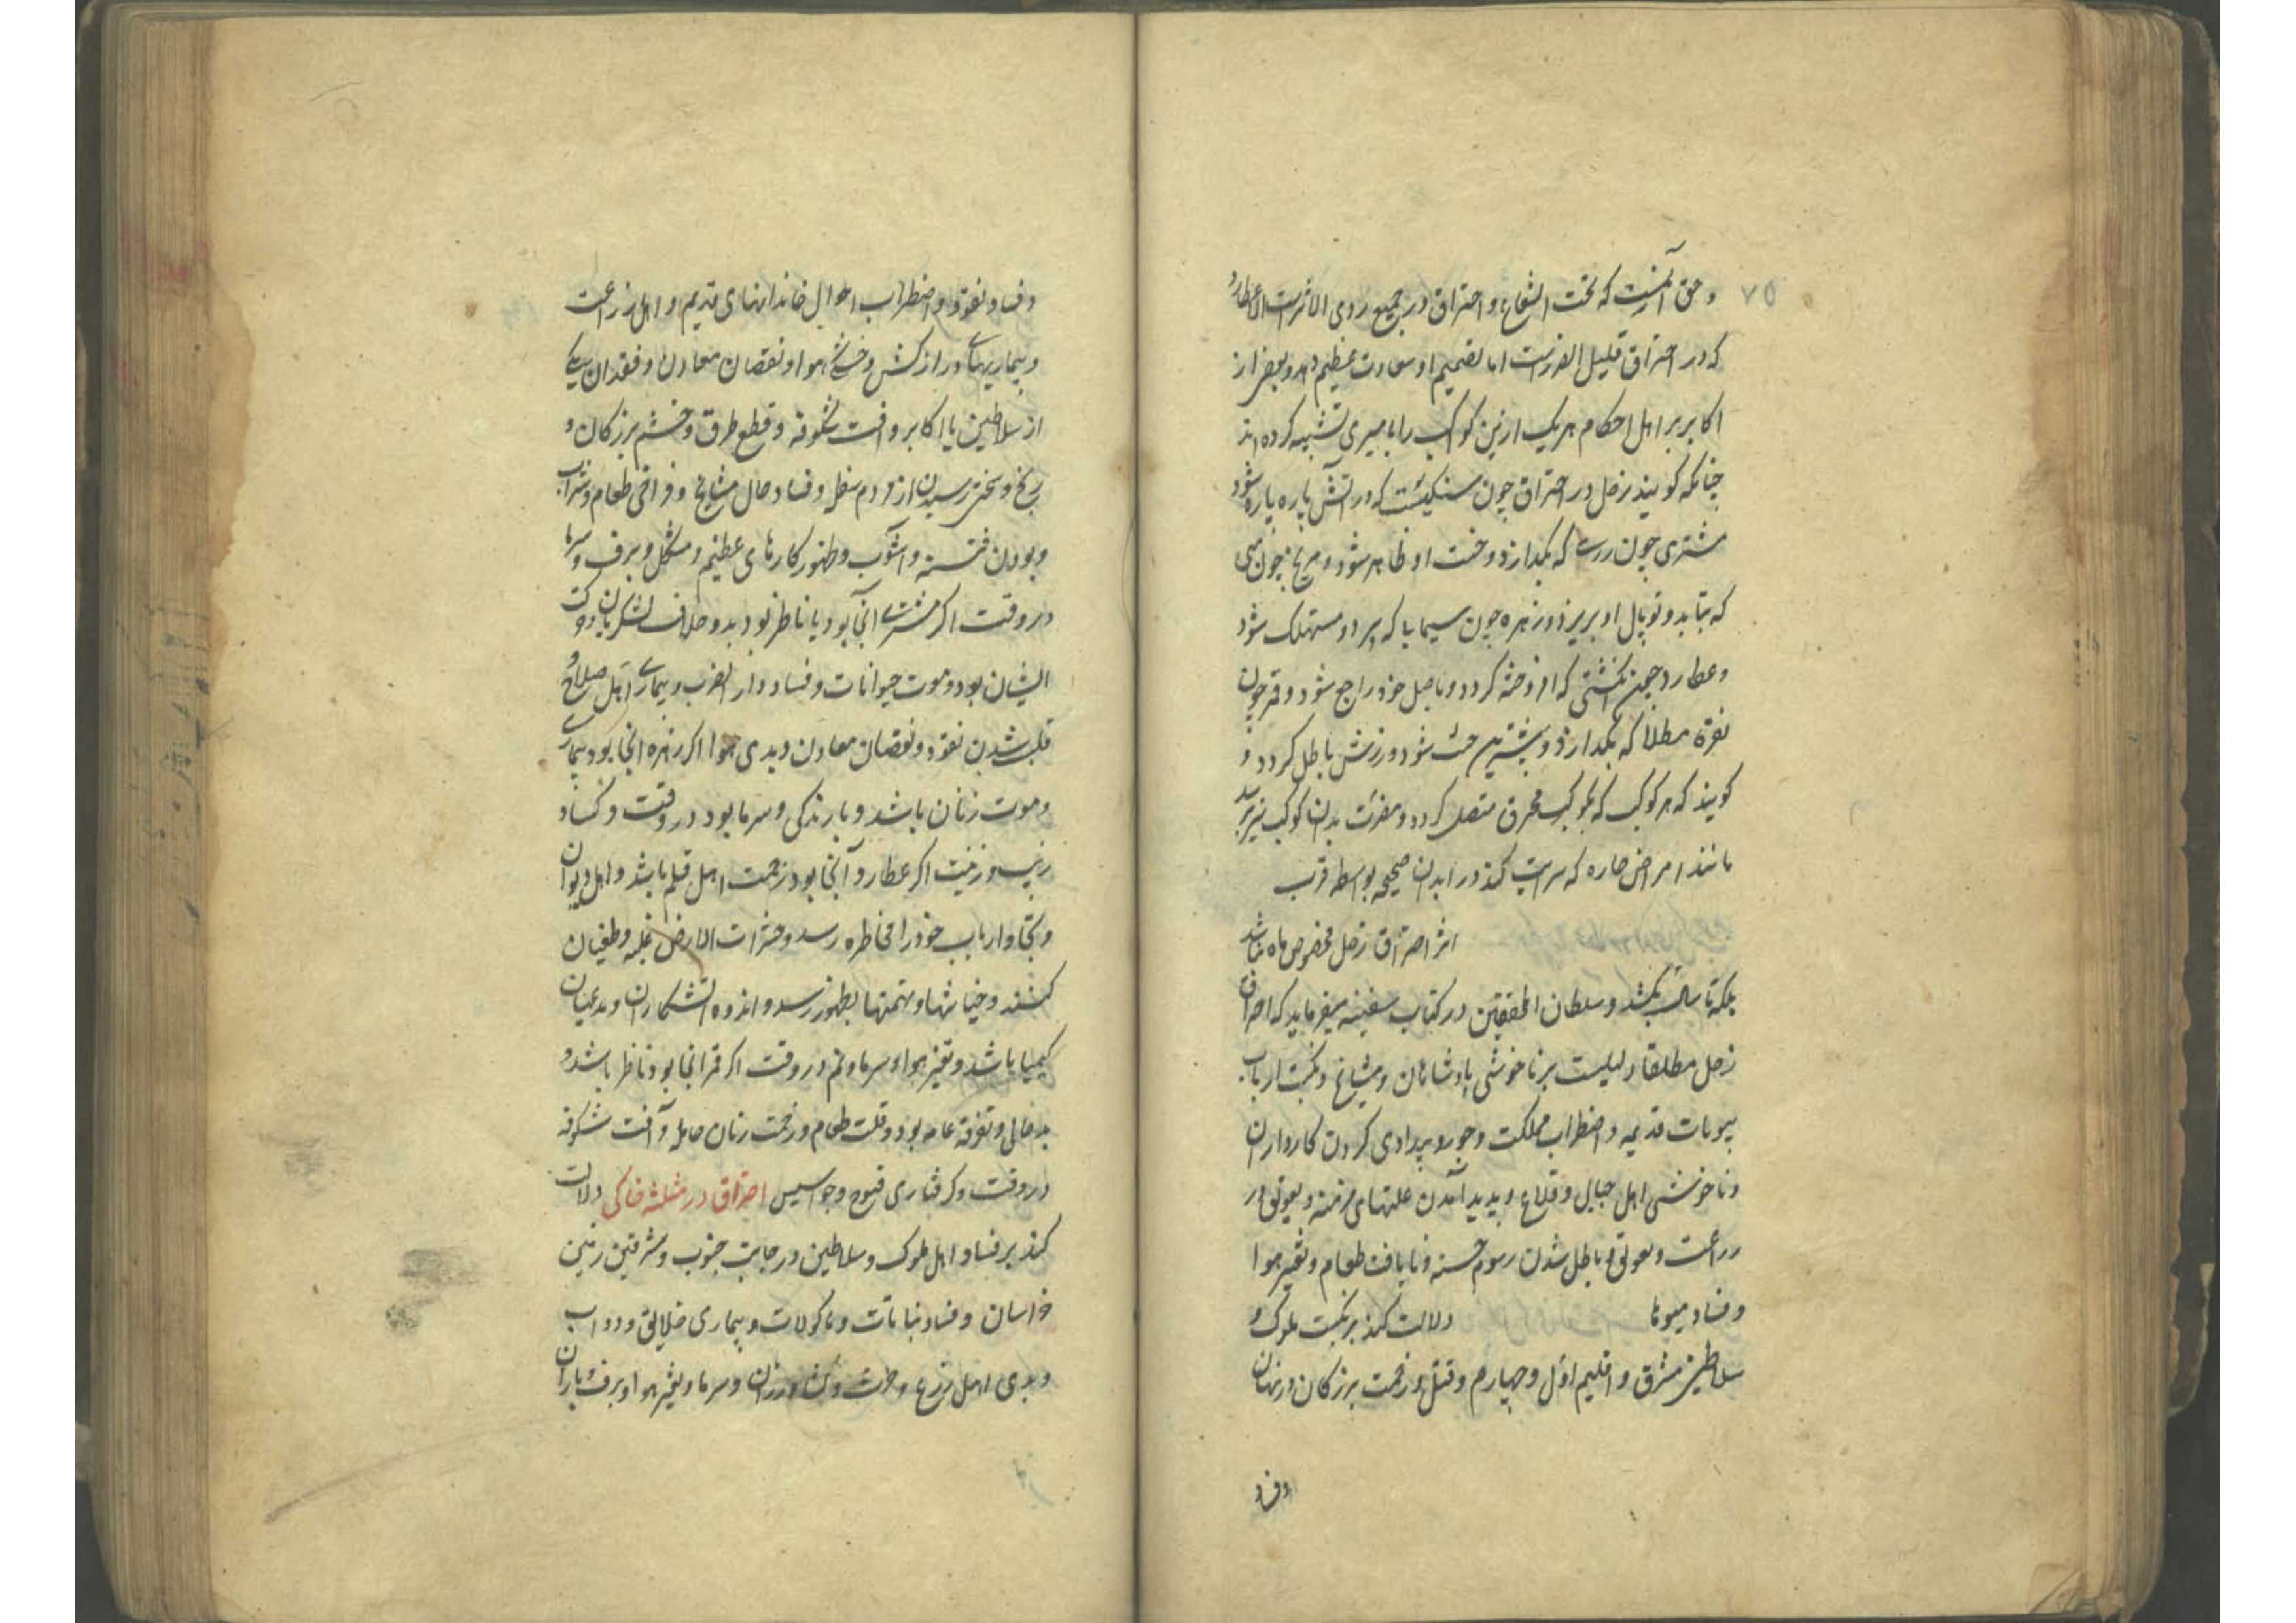 ۷۵
و حق آنست که تحت الشعاع و احتراق در جمیع ردی الاثرست الا عطارد
که در احتراق قلیل الضررست اما تصمیم او سعادت عظیم دهد و بعضی از
اکابر بر اهل احکام هر یک ازین کواکب را با میری تشبیه کرده اند
چنانکه کویند زحل در احتراق چون سنکیست که در آتش پاره پاره شود
مشتری چون که بکدازد و خبث او ظاهر شود و مریخ چون مسی
که بتابد و توبال او بریزد و زهره چون سیماب که بپرد و مستهلک شود
و عطارد چون که افروخته کردد و باصل خود راجع شود و قمر چون
نقره مطلا که بکدازد و شود و زرش باطل کردد و
کویند که هر کوکب که بکوکب محترق متصل کردد مضرت بدان کوکب نیز رسد
مانند امراض حاره که سرایت کند در ابدان صحیحه بواسطه قرب
اثر احتراق زحل مخصوص ماه نباشد
بلکه تا سال بکشد و سلطان المحققین در کتاب سفینه میفرماید که احتراق
زحل مطلقا دلیلست بر ناخوشی پادشاهان و مشایخ و نکبت ارباب
بیوتات قدیمه و اضطراب مملکت و جور و بیدادی کردن کارداران
و ناخوشی اهل جبال و قلاع و پدید آمدن علتهای مزمنه و تعویق در
زراعت و تعویق و باطل شدن رسوم حسنه و نایافت طعام و تغیر هوا
و فساد میوها دلالت کند بر نکبت ملوک و
سلاطین مشرق و اقلیم اول و چهارم و قتل و زحمت بزرکان و زنان
و فساد
و فساد نقود و اضطراب احوال خاندانهای قدیم و اهل زراعت
و بیماریهای دراز کشش و خشکی هوا و نقصان معادن و فقدان یکی
از سلاطین یا اکابر و آفت شکوفه و قطع طرق و خشم بزرکان و
رنج و سختی رسیدن از مردم سفله و فساد حال مشایخ و فراخی طعام و شراب
و بودن فتنه و آشوب و ظهور کارهای عظیم و مشکل و برف و سرما
در وقت اکر مشتری آنجا بود یا ناظر بود بدو خلاف لشکریان و
ایشان بود و موت حیوانات و فساد دار الضرب و بیماری اهل صلاح و
قلب شدن نقود و نقصان معادن و بدی هوا اکر زهره انجا بود بیماری
و موت زنان باشد و بارندکی و سرما بود در وقت و کساد
زیب و زینت اکر عطارد آنجا بود زحمت اهل قلم باشد و اهل دیوان
و تجار و ارباب خود را مخاطره رسد و حشرات الارض غلبه و طغیان
کنند و خیانتها و تهمتها بظهور رسد و اندوه آتشکاران و مدعیان
کیمیا باشد و تغیر هوا و سرما و نم در وقت اکر قمر انجا بود ناظر باشد و
بدحالی و تفرقه عامه بود و قلت طعام و زحمت زنان حامله و آفت شکوفه
در وقت و کرفتاری فیوج و جواسیس احتراق در مثلثه خاکی دلالت
کند بر فساد اهل ملوک و سلاطین در جانب جنوب و مشرقین زمین
خراسان و فساد نباتات و ماکولات و بیماری خلایق و دواب
و بدی اهل زرع و حرث و کشاورزان و سرما و تغیر هوا و برف و باران